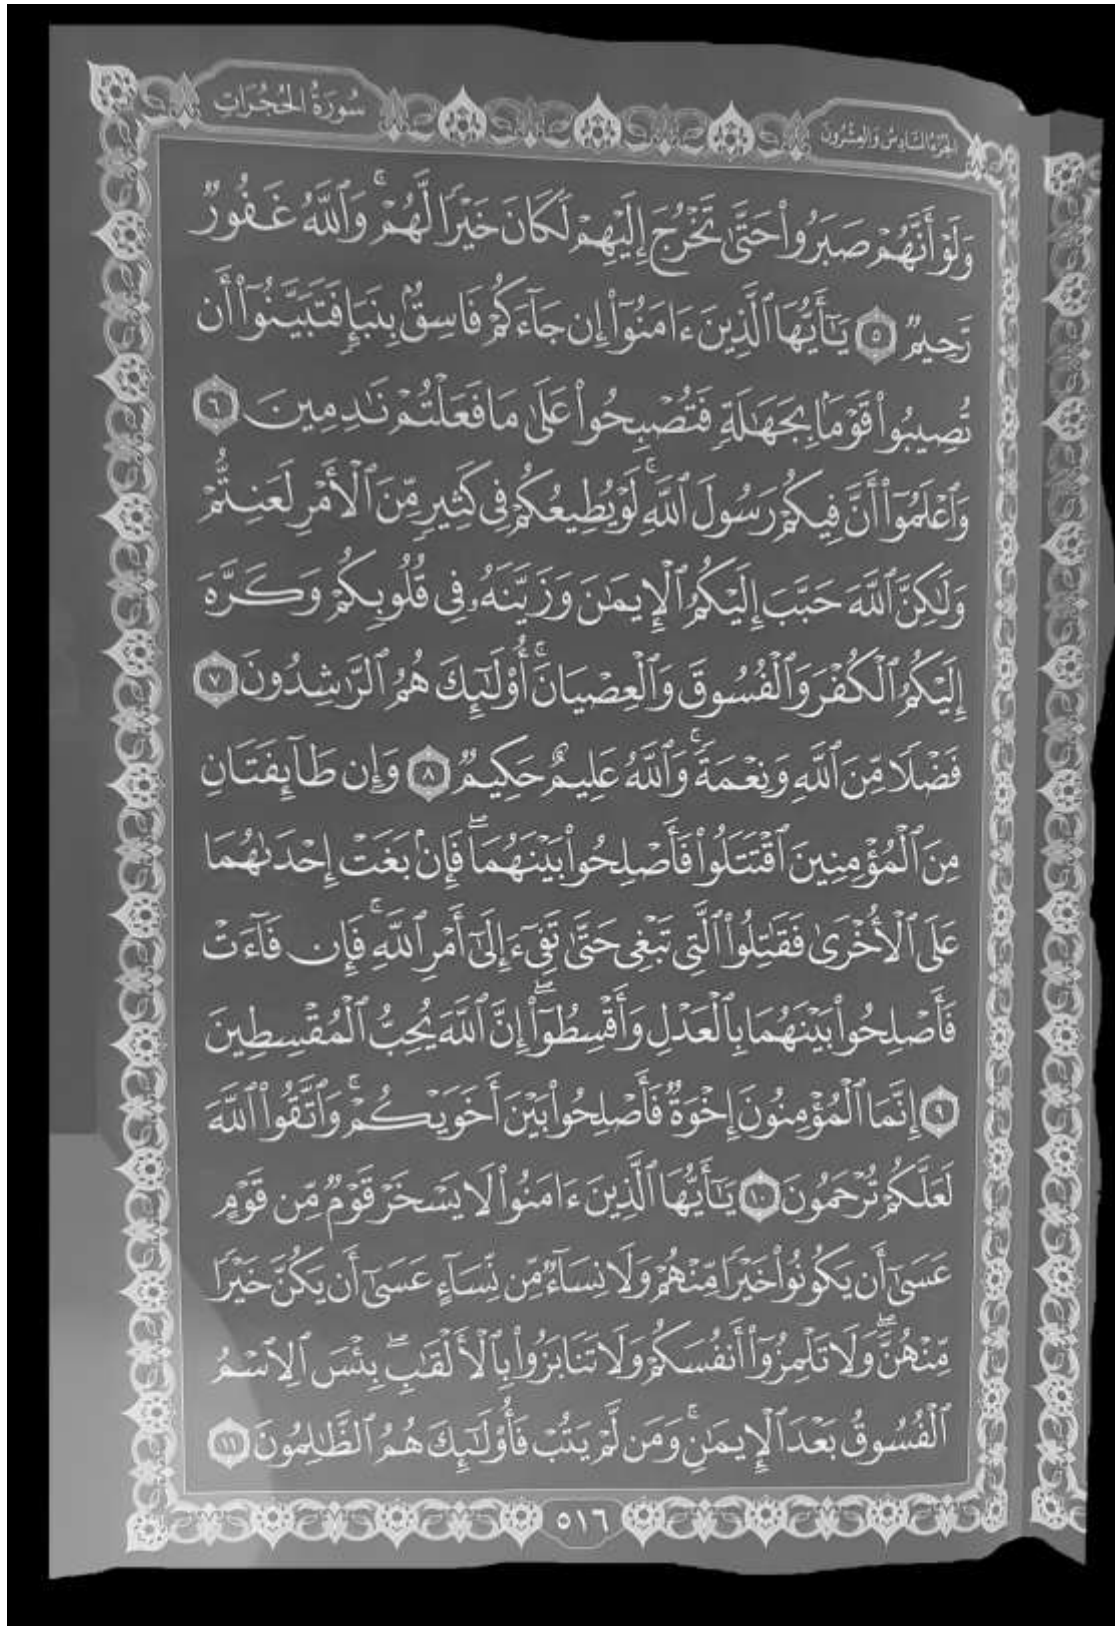 الجزء السادس والعشرون
سورة الحجرات
وَلَوْ أَنَّهُمْ صَبَرُوا۟ حَتَّىٰ تَخْرُجَ إِلَيْهِمْ لَكَانَ خَيْرًا لَّهُمْ ۚ وَٱللَّهُ غَفُورٌ
رَّحِيمٌ ٥ يَـٰٓأَيُّهَا ٱلَّذِينَ ءَامَنُوٓا۟ إِن جَآءَكُمْ فَاسِقٌۢ بِنَبَإٍ فَتَبَيَّنُوٓا۟ أَن
تُصِيبُوا۟ قَوْمًۢا بِجَهَـٰلَةٍ فَتُصْبِحُوا۟ عَلَىٰ مَا فَعَلْتُمْ نَـٰدِمِينَ ٦
وَٱعْلَمُوٓا۟ أَنَّ فِيكُمْ رَسُولَ ٱللَّهِ ۚ لَوْ يُطِيعُكُمْ فِى كَثِيرٍ مِّنَ ٱلْأَمْرِ لَعَنِتُّمْ
وَلَـٰكِنَّ ٱللَّهَ حَبَّبَ إِلَيْكُمُ ٱلْإِيمَـٰنَ وَزَيَّنَهُۥ فِى قُلُوبِكُمْ وَكَرَّهَ
إِلَيْكُمُ ٱلْكُفْرَ وَٱلْفُسُوقَ وَٱلْعِصْيَانَ ۚ أُو۟لَـٰٓئِكَ هُمُ ٱلرَّٰشِدُونَ ٧
فَضْلًا مِّنَ ٱللَّهِ وَنِعْمَةً ۚ وَٱللَّهُ عَلِيمٌ حَكِيمٌ ٨ وَإِن طَآئِفَتَانِ
مِنَ ٱلْمُؤْمِنِينَ ٱقْتَتَلُوا۟ فَأَصْلِحُوا۟ بَيْنَهُمَا ۖ فَإِنۢ بَغَتْ إِحْدَىٰهُمَا
عَلَى ٱلْأُخْرَىٰ فَقَـٰتِلُوا۟ ٱلَّتِى تَبْغِى حَتَّىٰ تَفِىٓءَ إِلَىٰٓ أَمْرِ ٱللَّهِ ۚ فَإِن فَآءَتْ
فَأَصْلِحُوا۟ بَيْنَهُمَا بِٱلْعَدْلِ وَأَقْسِطُوٓا۟ ۖ إِنَّ ٱللَّهَ يُحِبُّ ٱلْمُقْسِطِينَ
٩ إِنَّمَا ٱلْمُؤْمِنُونَ إِخْوَةٌ فَأَصْلِحُوا۟ بَيْنَ أَخَوَيْكُمْ ۚ وَٱتَّقُوا۟ ٱللَّهَ
لَعَلَّكُمْ تُرْحَمُونَ ١٠ يَـٰٓأَيُّهَا ٱلَّذِينَ ءَامَنُوا۟ لَا يَسْخَرْ قَوْمٌ مِّن قَوْمٍ
عَسَىٰٓ أَن يَكُونُوا۟ خَيْرًا مِّنْهُمْ وَلَا نِسَآءٌ مِّن نِّسَآءٍ عَسَىٰٓ أَن يَكُنَّ خَيْرًا
مِّنْهُنَّ ۖ وَلَا تَلْمِزُوٓا۟ أَنفُسَكُمْ وَلَا تَنَابَزُوا۟ بِٱلْأَلْقَـٰبِ ۖ بِئْسَ ٱلِٱسْمُ
ٱلْفُسُوقُ بَعْدَ ٱلْإِيمَـٰنِ ۚ وَمَن لَّمْ يَتُبْ فَأُو۟لَـٰٓئِكَ هُمُ ٱلظَّـٰلِمُونَ ١١
٥١٦